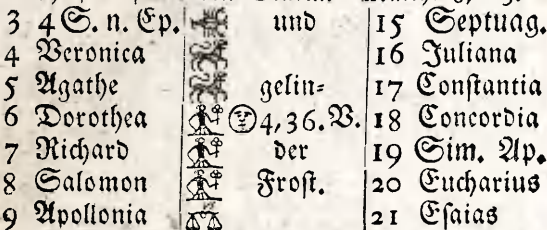 3 4 S. n. Ep. und 15 Septuag.
4 Veronica 16 Juliana
5 Agathe gelin= 17 Constantia
6 Dorothea 4,36. V. 18 Concordia
7 Richard der 19 Sim. Ap.
8 Salomon Frost. 20 Eucharius
9 Apollonia 21 Esaias